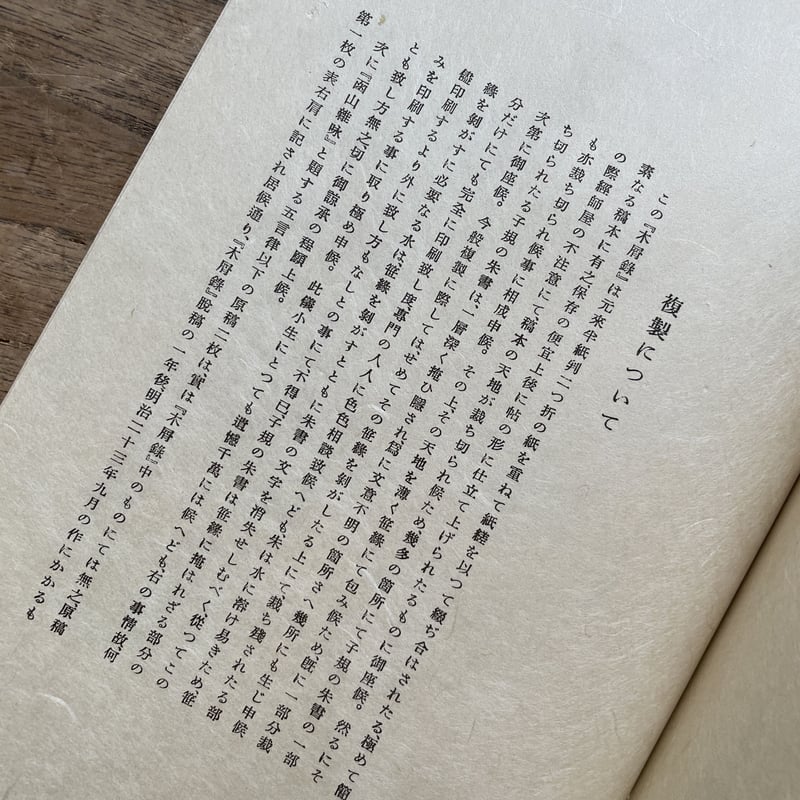 複製について
この『木屑錄』は元來半紙判二つ折の紙を重ねて紙縒を以つて綴ち合はされたる、極めて簡
素なる稿本に有之保存の便宜上後に帖の形に仕立て上げられたるものに御座候。然るにそ
の際經師屋の不注意にて稿本の天地が裁ち切られ候ため幾多の箇所にて子規の朱書の一部
も亦裁ち切られ候事に相成申候。その上、その天地を薄く笹緣にて包み候ため、既に一部分裁
ち切られたる子規の朱書は、一層深く掩ひ隱され爲に文意不明の箇所さへ幾所にも生じ申候
次第に御座候。今般複製に際してはせめてその笹緣を剝がしたる上にて裁ち殘されたる部
分だけにても完全に印刷致し度、專門の人人に色色相談致候へども、朱は水に溶け易きため、笹
緣を剝がすに必要なる水は、笹緣を剝がすとともに朱書の文字を消失せしむべく、從つてこの
儘印刷するより外に致し方もなしとの事にて不得已、子規の朱書は笹緣に掩はれざる部分の
みを印刷する事に取り極め申候。此儀小生にとつても遺憾千萬には候へども、右の事情故、何
とも致し方無之切に御諒承の程願上候。
次に『函山雜咏』と題する五言律以下の原稿二枚は、實は『木屑錄』中のものにては無之、原稿
第一枚の表右肩に記され居候通り、『木屑錄』脫稿の一年後、明治二十三年九月の作にかかるも